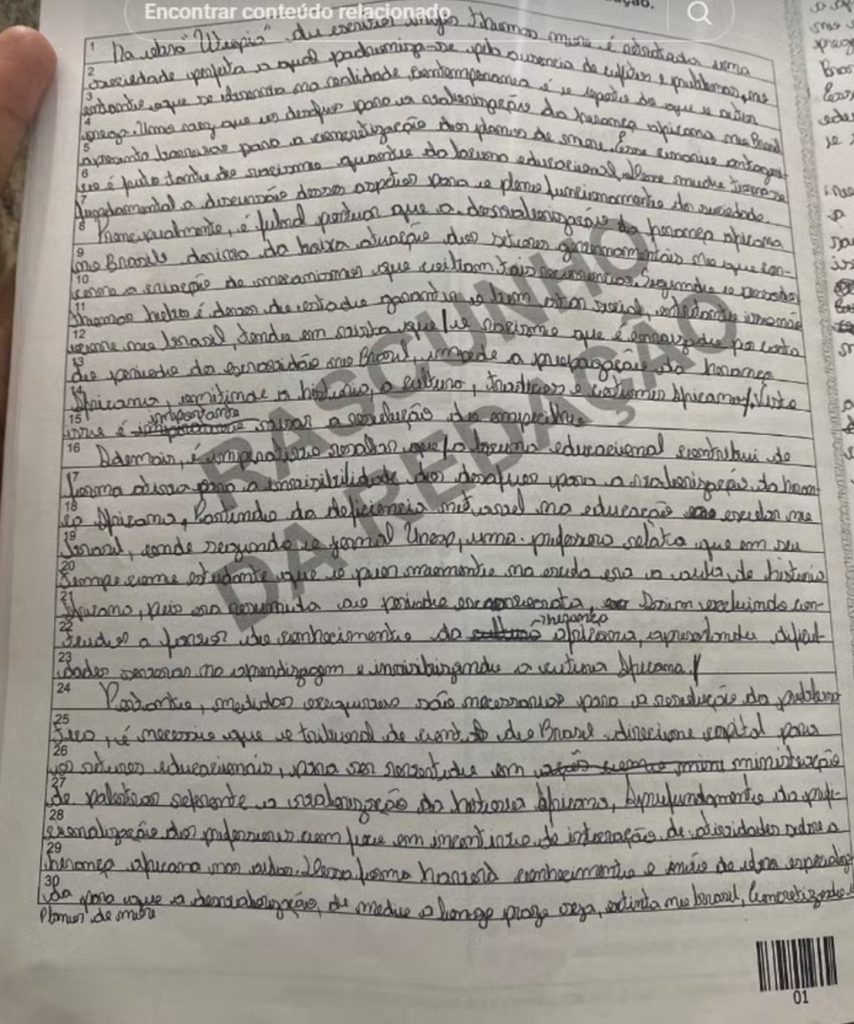 Encontrar conteúdo relacionado
1 Na obra "Utopia" do escritor inglês Thomas more é retratada uma
2 sociedade perfeita a qual padroniza-se pela ausencia de conflitos e problemas, no
3 entanto, o que se observa na realidade contemporanea é o oposto do que o autor
4 prega. Uma vez que os desafios para a valorização da herança africana no Brasil
5 apresenta barreiras para a concretização dos planos de more. Esse cenario
6 é fruto tanto do racismo quanto da lacuna educacional, desse modo torna-se
7 fundamental a discussão desses aspectos para o pleno funcionamento da sociedade.
8 é fulcral pontuar que a desvalorização da herança africana
9 no Brasil deriva da baixa atuação dos setores governamentais no que con-
10 cerne a criação de mecanismos que coibam tais recorrencias. Segundo o pensador
11 thomas hobbes é dever do estado garantir o bem estar social, entretanto isso não
12 ocorre no brasil, tendo em vista que o racismo que é enraizado por conta
13 do periodo da escravidão no Brasil, impede a propagação da herança
14 Africana, a historia, a cultura, tradições e costumes Africano. Visto
15 isso é importante a resolução do empecilho
16 Ademais, é imperativo ressaltar que a lacuna educacional contribui de
17 forma ativa para a invisibilidade dos desafios para a valorização da heran-
18 ça Africana, Partindo da deficiencia na educação escolar no
19 brasil, onde segundo o jornal Unesp, uma professora relata que em seu
20 tempo como estudante que o pior momento na escola era a aula de historia
21 Africana, pois era resumida ao periodo escravocrata, Assim excluindo con-
22 teudos a favor do conhecimento da herança africana, apresentando dificul-
23 dades na aprendizagem e a cultura Africana.
24 Portanto, medidas são necessarias para a resolução do problema
25 é necessario que o tribunal de contas do Brasil direcione capital para
26 os setores educacionais, para ser revertido em ministração
27 de palestras referente a valorização da historia Africana, Aprofundamento da profi-
28 ssionalização dos professores com foco em de interação de atividades sobre a
29 herança africana nas aulas. Dessa forma haverá conhecimento e
30 da para que a desvalorização, de medio a longo prazo seja, extinta no brasil, Concretizando
Planos de more
RASCUNHO
DA REDAÇÃO
01